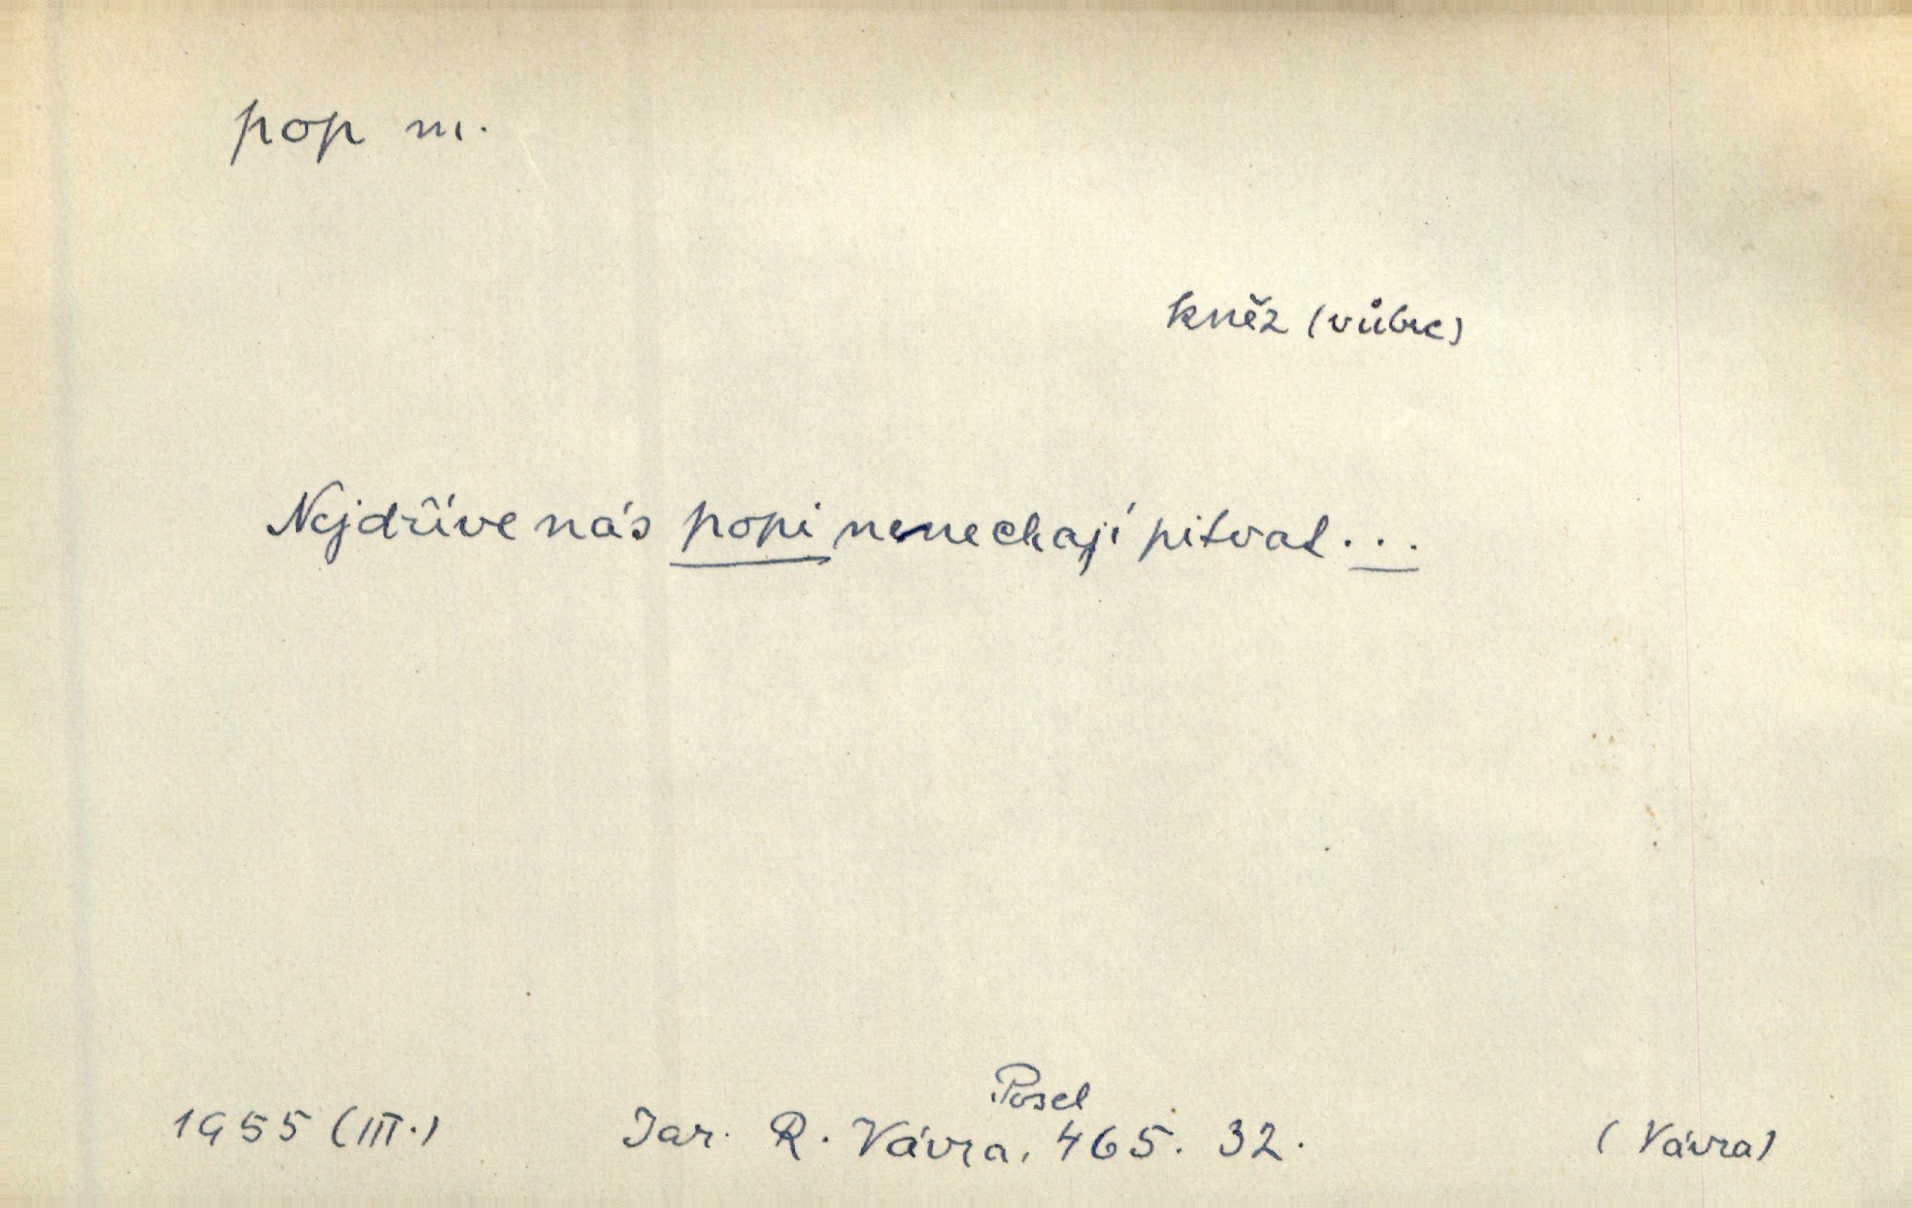 pop m.
kněz (vůbec)
Nejdříve nás popi nenechají pitvat...
Posel
1955 (III.) Jar. R. Vávra, 465. 32. (Vávra)